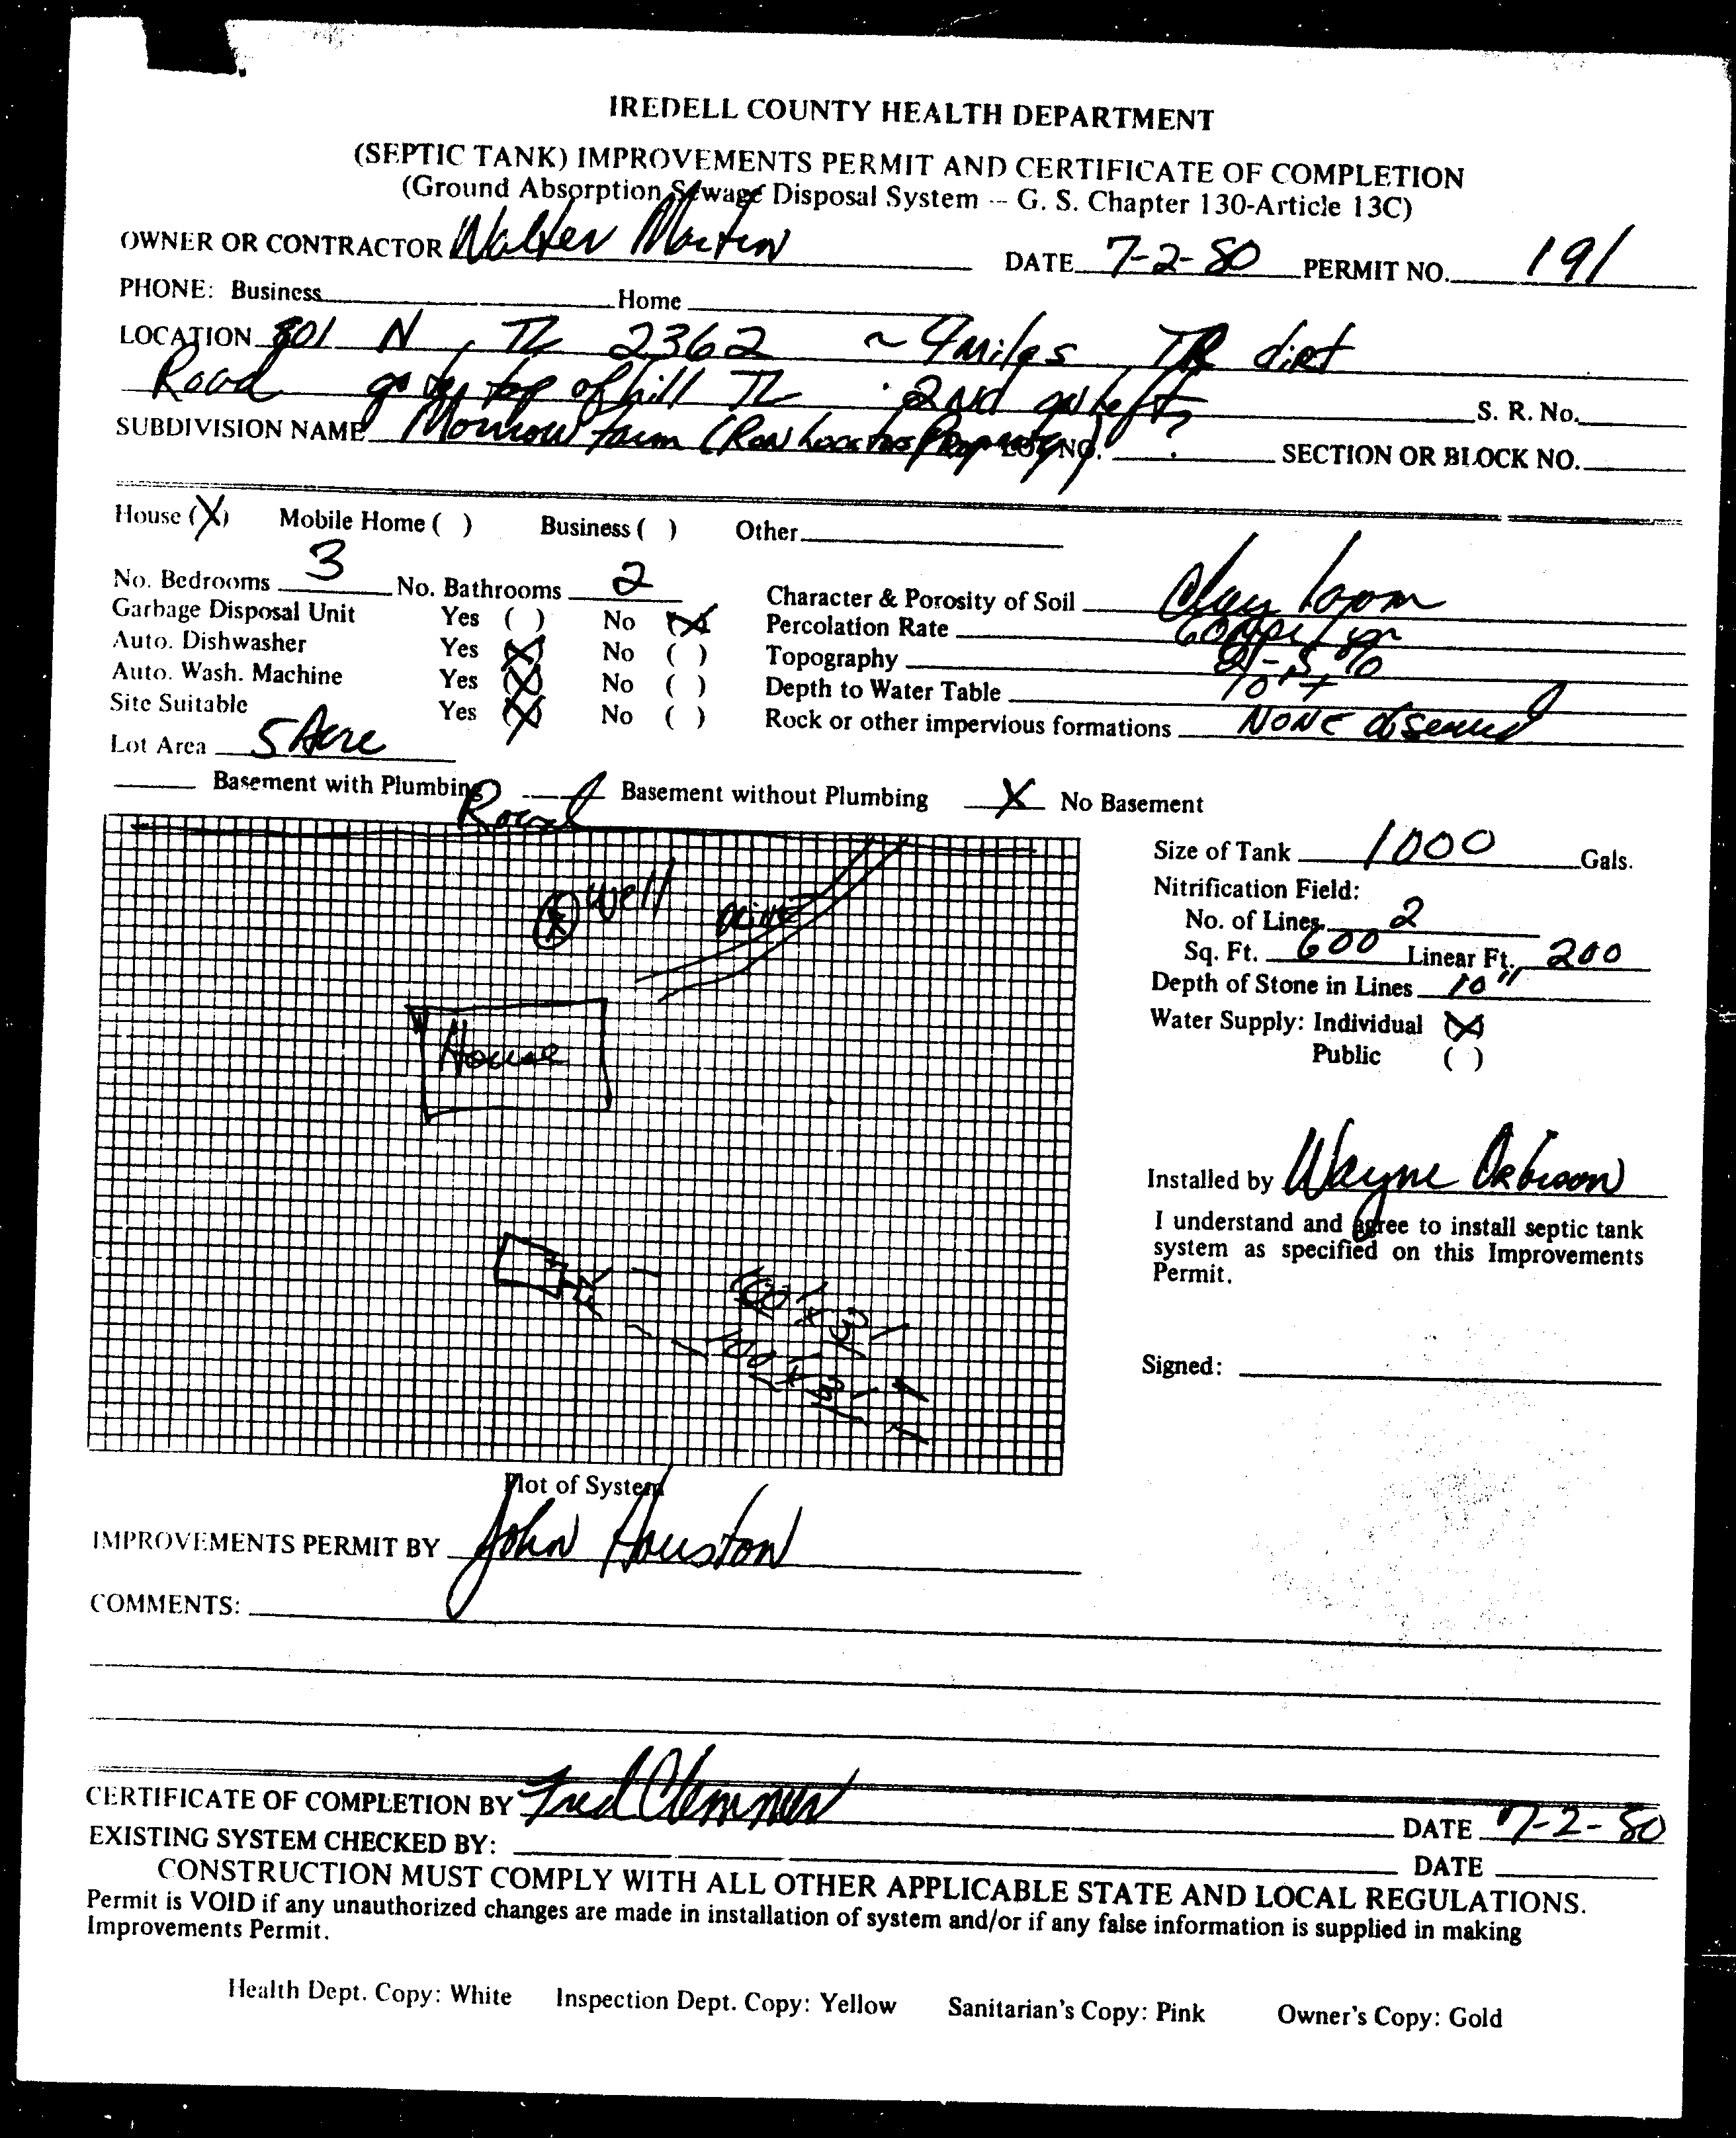 IREDELL COUNTY HEALTH DEPARTMENT
(SEPTIC TANK) IMPROVEMENTS PERMIT AND CERTIFICATE OF COMPLETION
(Ground Absorption Sewage Disposal System -- G. S. Chapter 130-Article 13C)
OWNER OR CONTRACTOR Walter Martin DATE 7-2-80 PERMIT NO. 191
PHONE: Business Home
LOCATION 801 N TL 2362 ~ 4 miles TR dirt
Road go to top of hill TL 2nd on left S. R. No.
SUBDIVISION NAME Morrow farm (Ron Property) LOT NO. SECTION OR BLOCK NO.
House (X) Mobile Home ( ) Business ( ) Other
No. Bedrooms 3 No. Bathrooms 2 Character & Porosity of Soil Clay loam
Garbage Disposal Unit Yes ( ) No (X) Percolation Rate
Auto. Dishwasher Yes (X) No ( ) Topography
Auto. Wash. Machine Yes (X) No ( ) Depth to Water Table
Site Suitable Yes (X) No ( ) Rock or other impervious formations NONE observed
Lot Area 5 Acre
Basement with Plumbing Basement without Plumbing X No Basement
Road
well
drive
House
100 x 3
100 x 3
Plot of System
Size of Tank 1000 Gals.
Nitrification Field:
No. of Lines 2
Sq. Ft. 600 Linear Ft. 200
Depth of Stone in Lines 10"
Water Supply: Individual (X)
Public ( )
Installed by Wayne Orbison
I understand and agree to install septic tank
system as specified on this Improvements
Permit.
Signed:
IMPROVEMENTS PERMIT BY John Houston
COMMENTS:
CERTIFICATE OF COMPLETION BY Fred Clemmer DATE 7-2-80
EXISTING SYSTEM CHECKED BY: DATE
CONSTRUCTION MUST COMPLY WITH ALL OTHER APPLICABLE STATE AND LOCAL REGULATIONS.
Permit is VOID if any unauthorized changes are made in installation of system and/or if any false information is supplied in making
Improvements Permit.
Health Dept. Copy: White Inspection Dept. Copy: Yellow Sanitarian's Copy: Pink Owner's Copy: Gold